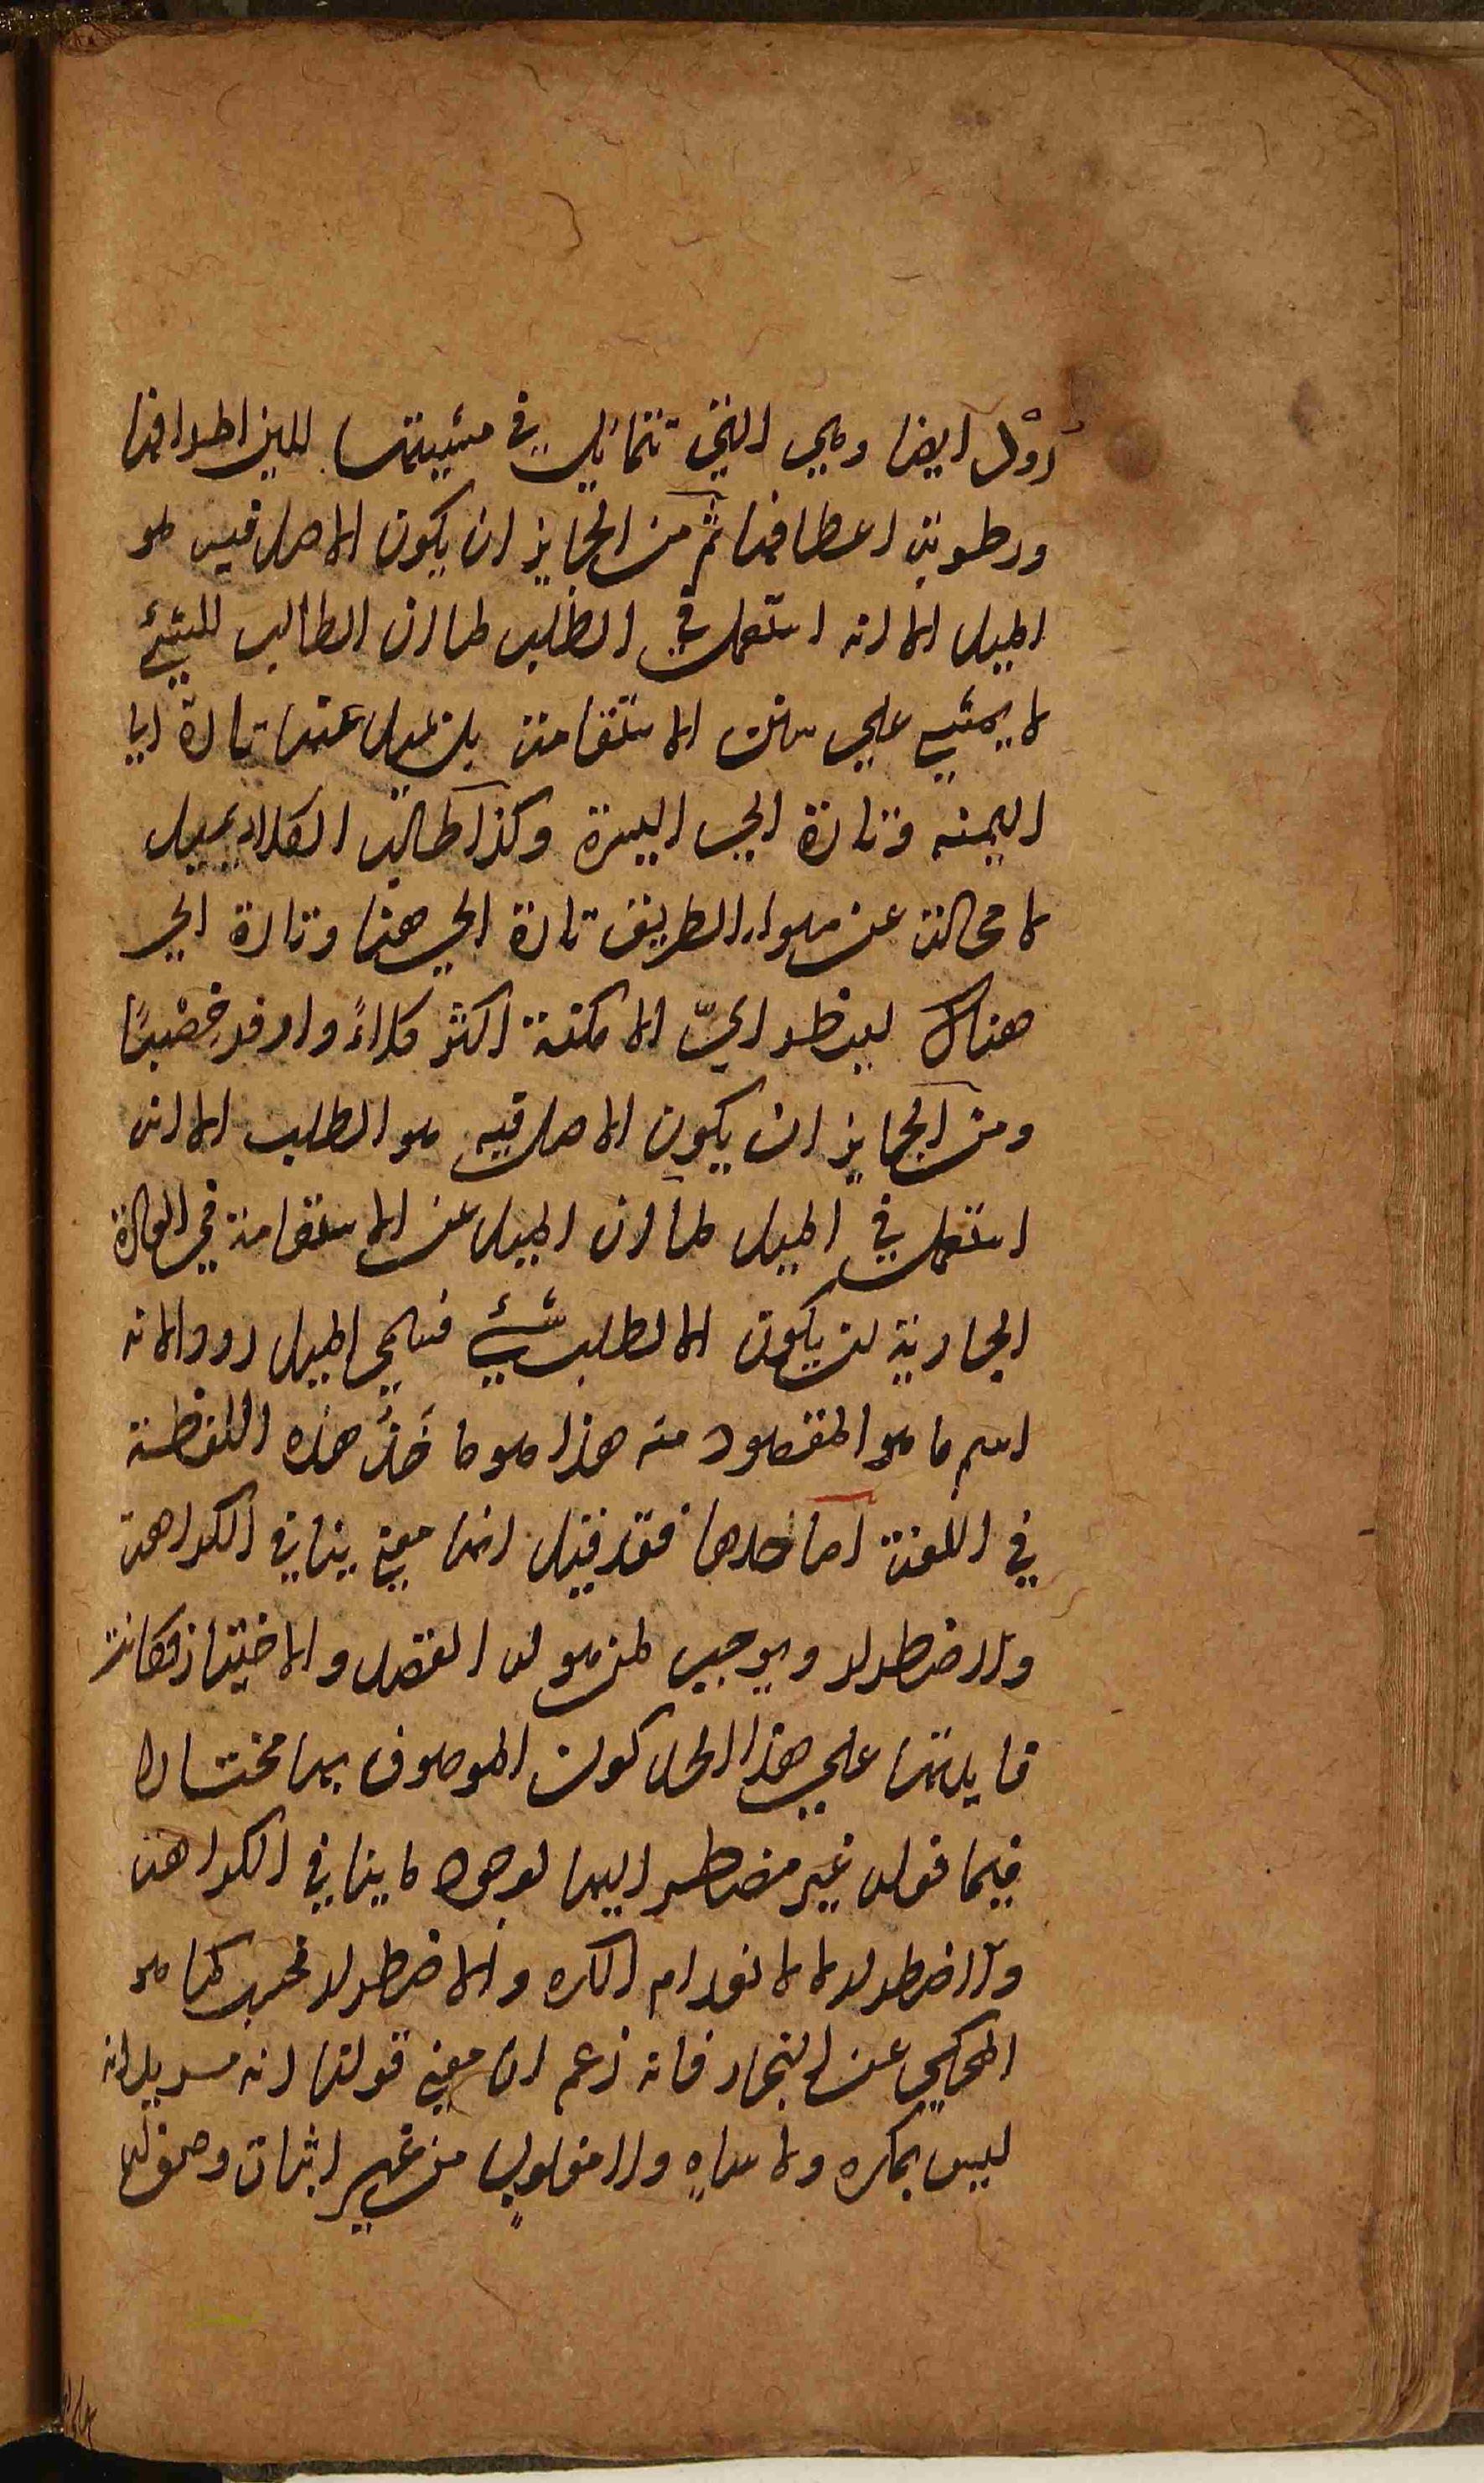 رَوْل ايضا وهي التي تتمايل في مشيتها للين اطرافها
ورطوبة اعطافها ثم من الجايز ان يكون الاصل فيه هو
الميل الا انه استعمل في الطلب لما ان الطالب للشئ
لا يمشي علي سنن الاستقامة بل يميل عنها تارة الي
اليمنه وتارة الي اليسرة وكذا طالب الكلاء يميل
لا محالة عن سواء الطريق تارة الي هنا وتارة الي
هناك لينظر ايّ الامكنة اكثر كلاءً واوفر خِصْبًا
ومن الجايز ان يكون الاصل فيه هو الطلب الا انه
استعمل في الميل لما ان الميل عن الاستقامة في العادة
الجارية لن يكون الا لطلب شئ فسمي الميل رودا لانه
اسم ما هو المقصود منه هذا هو ماخذ هذه اللفظة
في اللغة اما حدها فقد قيل انها معني ينافي الكراهة
والاضطرار ويوجب لمن هو له القصد والاختيار فكانت
فايدتها علي هذا الحد كون الموصوف بها مختارا
فيما فعله غير مضطر اليها لوجود ما ينافي الكراهة
والاضطرار لا لانعدام الكره والاضطرار فحسب كما هو
المحكي عن النجار فانه زعم ان معني قولنا انه مريد انه
ليس بمكره ولا ساهٍ ولا مغلوبٍ من غير اثبات وصف له